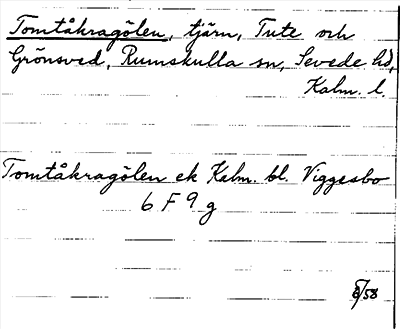 Tomtåkragölen, tjärn, Tute och
Grönsved, Rumskulla sn, Sevede hd,
Kalm. l.
Tomtåkragölen ek Kalm. bl. Viggesbo
6 F 9 g
8/58